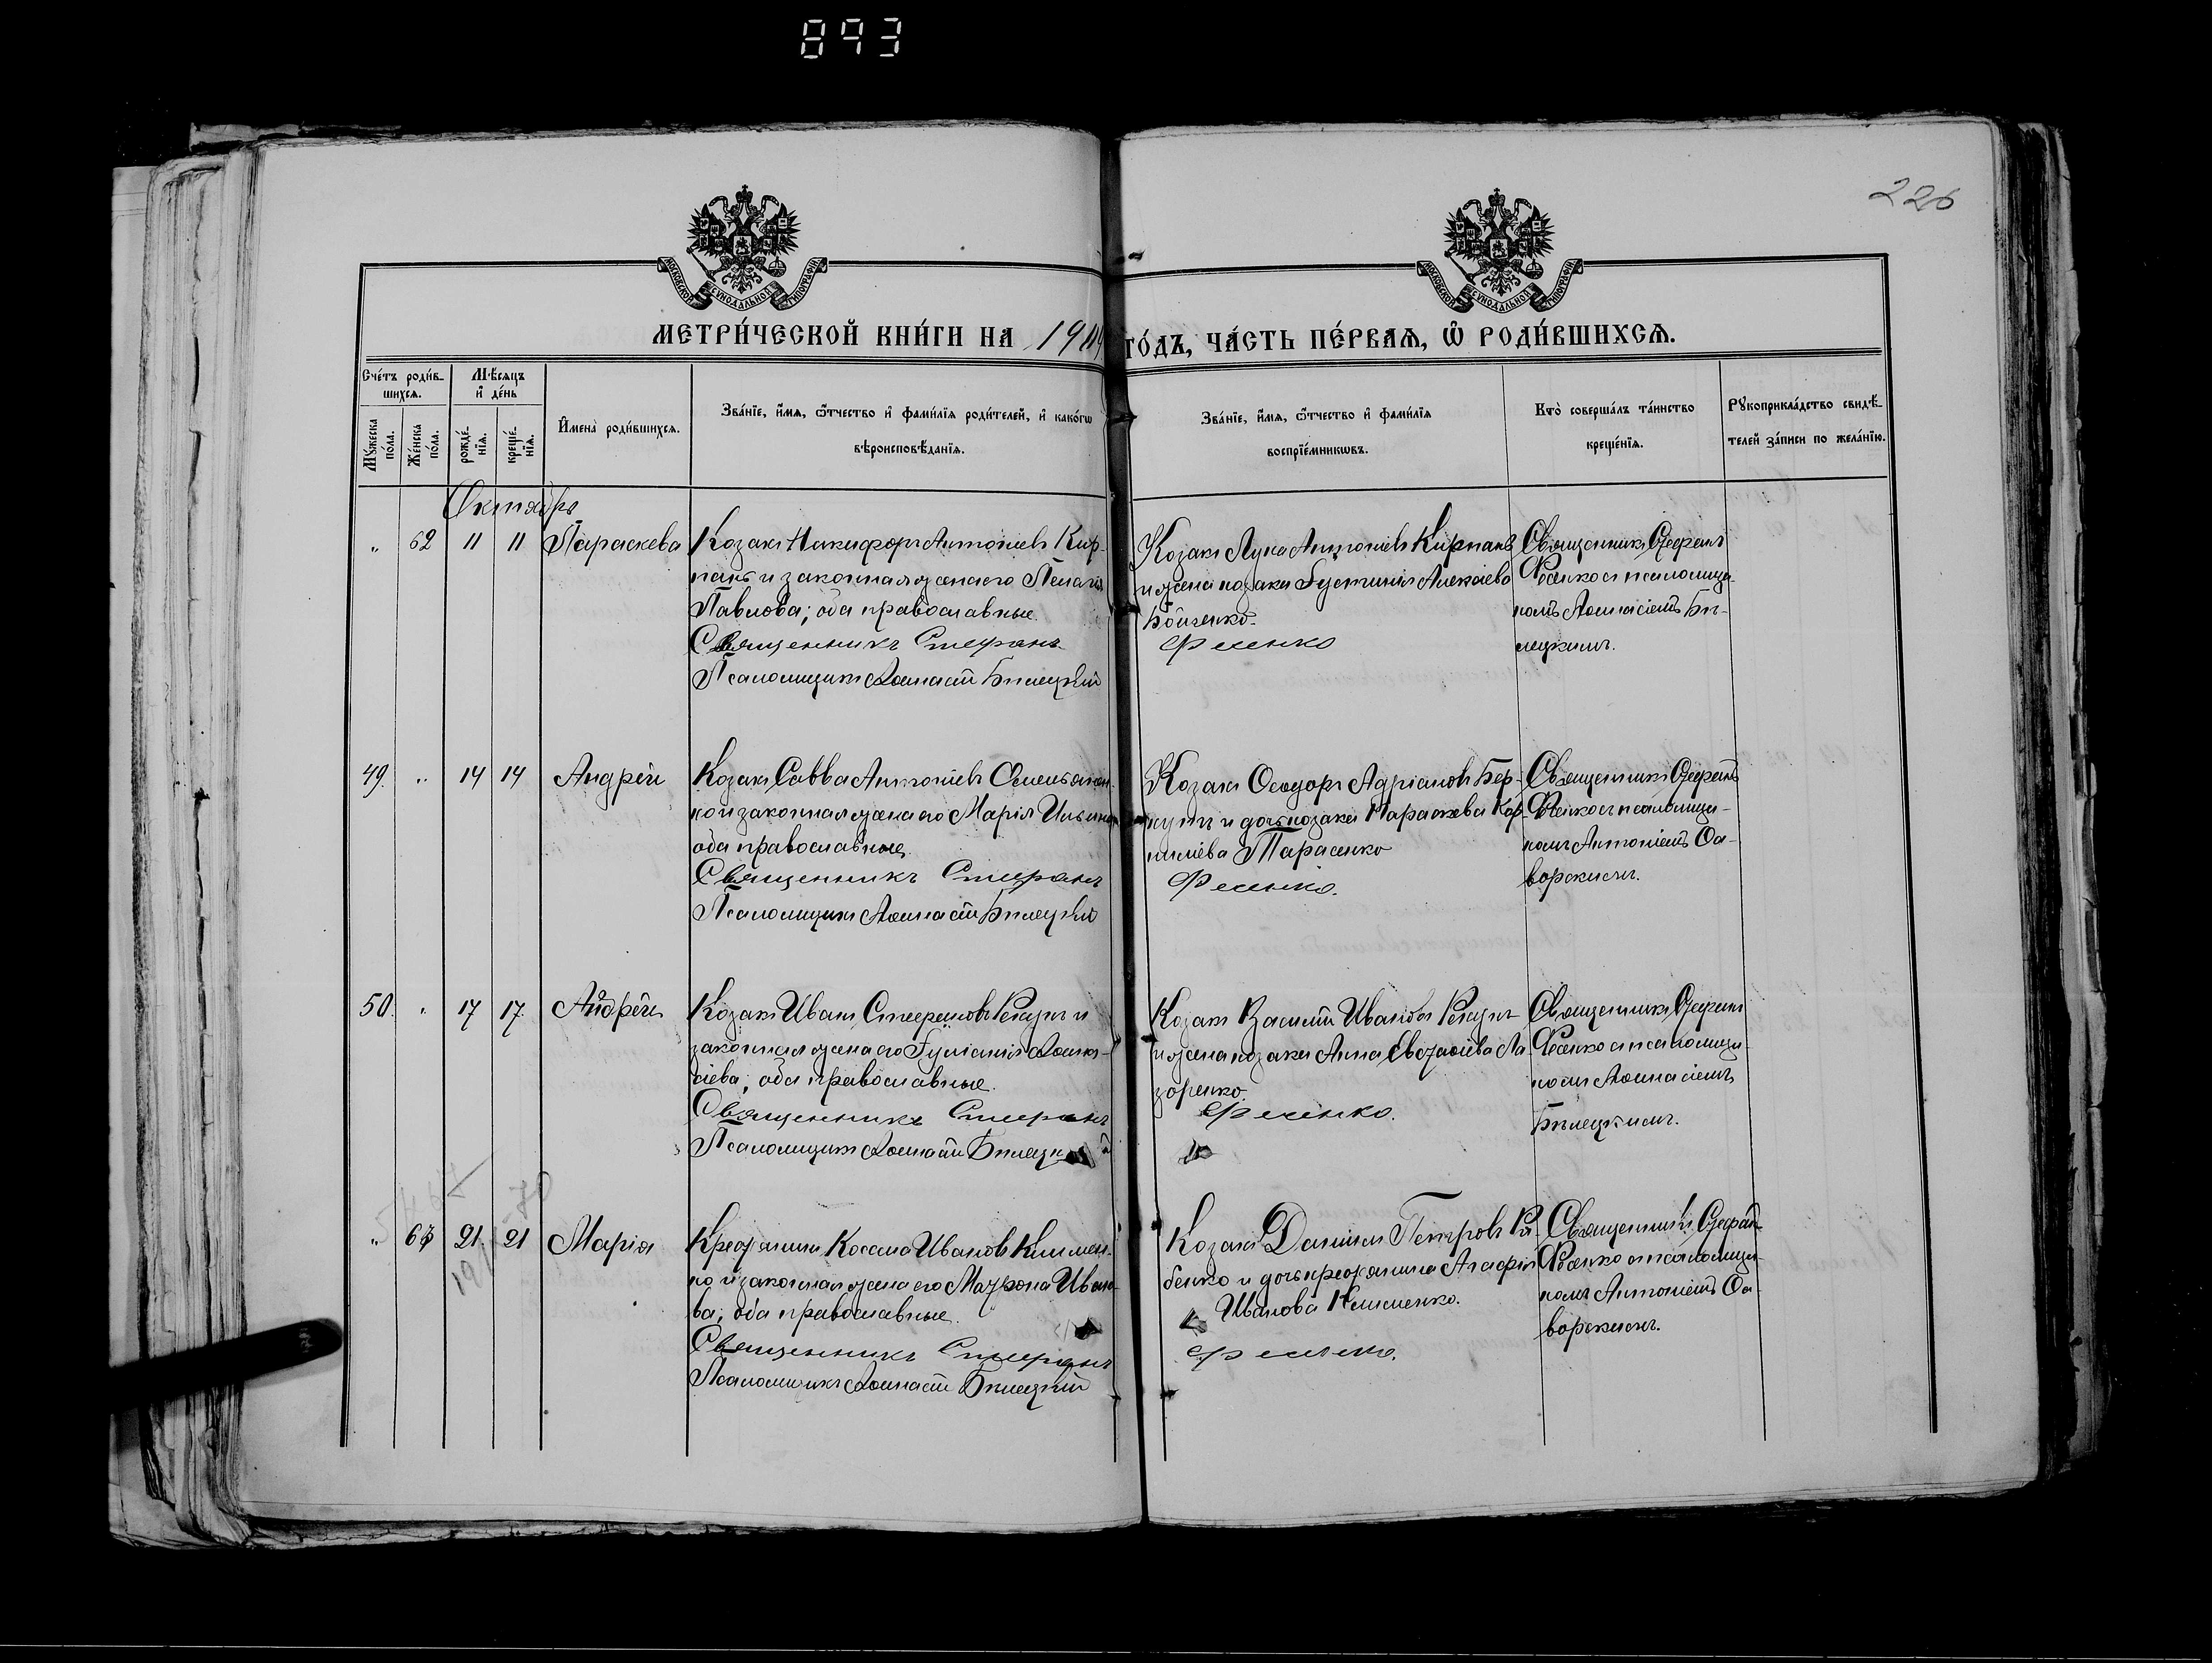 893
226
МОСКОВСКОЙ СѴНОДАЛЬНОЙ ТИПОГРАФІИ
МОСКОВСКОЙ СѴНОДАЛЬНОЙ ТИПОГРАФІИ
МЕТРИ́ЧЕСКОЙ КНИ́ГИ НА 19 ГО́ДЪ, ЧА́СТЬ ПЕ́РВАѦ, Ѡ҆ РОДИ́ВШИХСѦ.
Сче́тъ роди́в-
шихсѧ.
Мꙋ́жеска
по́ла.
Же́нска
по́ла.
Мѣ́сѧцъ
и҆ де́нь
рожде́-
нїѧ.
креще́-
нїѧ.
И҆мена̀ роди́вшихсѧ.
Зва́нїе, и҆́мѧ, ѻ҆́тчество и҆ фами́лїѧ роди́телей, и҆ како́гѡ
вѣроисповѣ́данїѧ.
Зва́нїе, и҆́мѧ, ѻ҆́тчество и҆ фами́лїѧ
воспрїе́мникѡвъ.
Кто̀ соверша́лъ та́инство
креще́нїѧ.
Рꙋкоприкла́дство свидѣ́-
телей за́писи по жела́нїю.
Октябрь
" 62 11 11 Параскева
Козакъ Никифоръ Антоніевъ Кир-
панъ и законная жена его Пелагія
Павлова; оба православные.
Священникъ Стефанъ
Псаломщикъ Аѳанасій Бѣлецкій
Козакъ Лука Антоніевъ Кирпанъ
и жена козака Іустинія Алексіева
Бойченко.
Фесенко
Священникъ Стефанъ
Фесенко съ псаломщи-
комъ Аѳанасіемъ Бѣ-
лецкимъ.
49. " 14 14 Андрей
Козакъ Савва Антоніевъ Омельянен-
ко и законная жена его Марія Ильина
оба православные.
Священникъ Стефанъ
Псаломщикъ Аѳанасій Бѣлецкій
Козакъ Ѳеодоръ Адріановъ Бер-
кутъ и дочь козака Параскева Кор-
нилиева Тарасенко
Фесенко.
Священникъ Стефанъ
Фесенко съ псаломщи-
комъ Антоніемъ Са-
ворскимъ.
50. " 17 17. Андрей
Козакъ Иванъ Стефановъ Рекунъ и
законная жена его Іуліанія Аѳана-
сіева; оба православные.
Священникъ Стефанъ
Псаломщикъ Аѳанасій Бѣлецкій
Козакъ Василій Ивановъ Рекунъ
и жена козака Анна Евстафіева Ла-
заренко.
Фесенко.
Священникъ Стефанъ
Фесенко съ псаломщи-
комъ Аѳанасіемъ
Бѣлецкимъ.
" 63 21 21 Марія
Крестьянинъ Косьма Ивановъ Климен-
ко и законная жена его Матрона Ивано-
ва; оба православные.
Священникъ Стефанъ
Псаломщикъ Аѳанасій Бѣлецкій
Козакъ Даніилъ Петровъ Ря-
бенко и дочь крестьянина Агафія
Иванова Клименко.
Фесенко.
Священникъ Стефанъ
Фесенко съ псаломщи-
комъ Антоніемъ Са-
ворскимъ.